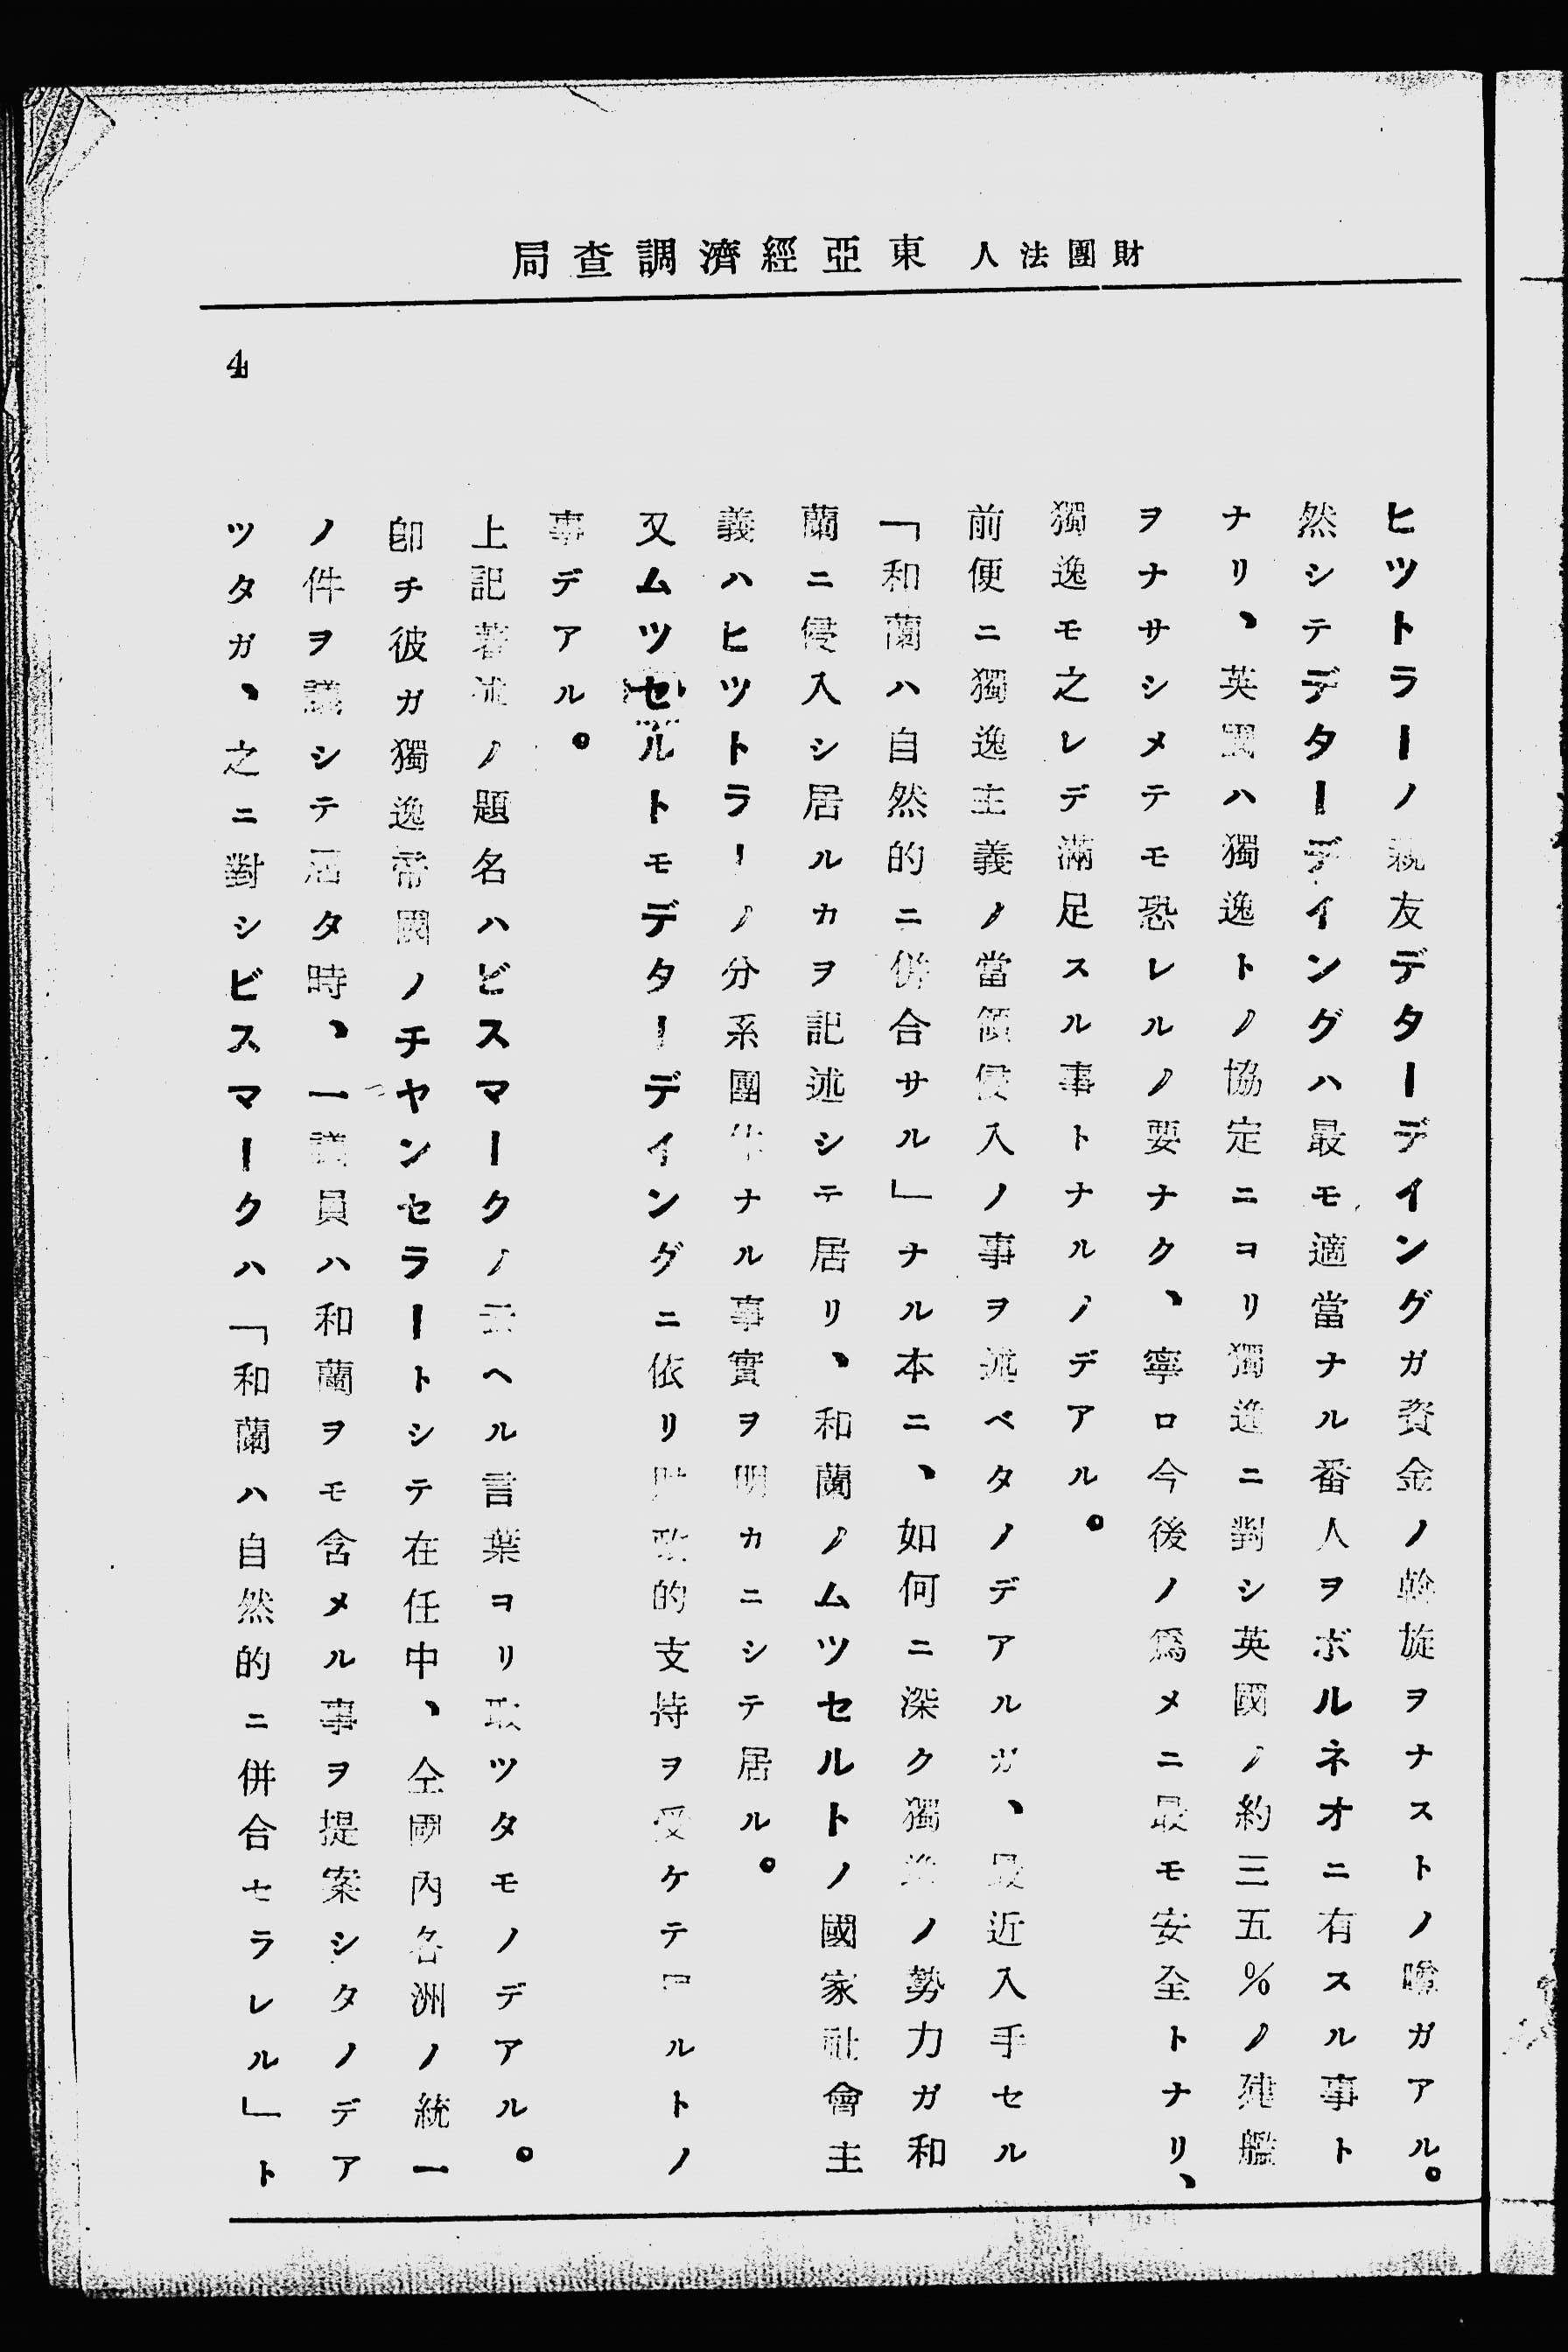 財團法人 東亞經濟調査局
ヒツトラーノ親友デターデイングガ資金ノ斡旋ヲナストノ噂ガアル。
然シテデターデイングハ最モ適當ナル番人ヲボルネオニ有スル事ト
ナリ、英國ハ獨逸トノ協定ニヨリ獨逸ニ對シ英國ノ約三五%ノ建艦
ヲナサシメテモ恐レルノ要ナク、寧ロ今後ノ爲メニ最モ安全トナリ、
獨逸モ之レデ滿足スル事トナルノデアル。
前便ニ獨逸主義ノ當領侵入ノ事ヲ述ベタノデアルガ、最近入手セル
「和蘭ハ自然的ニ併合サル」ナル本ニ、如何ニ深ク獨逸ノ勢力ガ和
蘭ニ侵入シ居ルカヲ記述シテ居リ、和蘭ノムツセルトノ國家社會主
義ハヒツトラーノ分系團体ナル事實ヲ明カニシテ居ル。
又ムツセルトモデターデイングニ依リ財政的支持ヲ受ケテ居ルトノ
事デアル。
上記著述ノ題名ハビスマークノ云ヘル言葉ヨリ取ツタモノデアル。
卽チ彼ガ獨逸帝國ノチヤンセラートシテ在任中、全國內各洲ノ統一
ノ件ヲ議シテ居タ時、一議員ハ和蘭ヲモ含メル事ヲ提案シタノデア
ツタガ、之ニ對シビスマークハ「和蘭ハ自然的ニ併合セラレル」ト
4